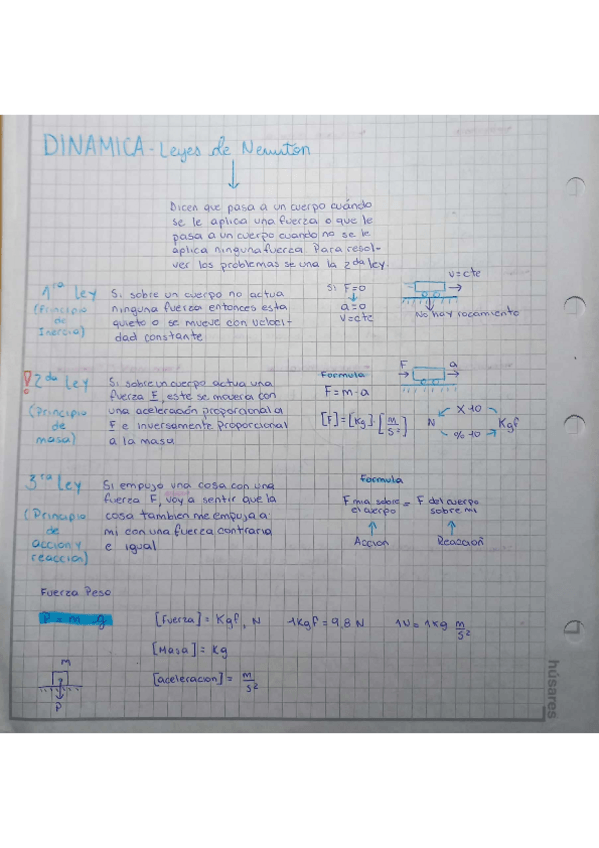 DINAMICA - Leyes de Newton
Dicen que pasa a un cuerpo cuándo
se le aplica una fuerza o que le
pasa a un cuerpo cuando no se le
aplica ninguna fuerza. Para resol-
ver los problemas se una la 2da ley.
1ra Ley
(Principio
de
Inercia)
Si sobre un cuerpo no actua
ninguna fuerza entonces esta
quieto o se mueve con veloci-
dad constante
Si F=0
a=0
v=cte
v=cte
No hay rozamiento
! 2da Ley
(Principio
de
masa)
Si sobre un cuerpo actua una
fuerza F, este se movera con
una aceleración proporcional a
F e inversamente proporcional
a la masa
Formula
F=m·a
[F]=[Kg].[m/s²]
F a
N x10 Kgf
% 10
3ra Ley
(Principio
de
accion y
reaccion)
Si empujo una cosa con una
fuerza F, voy a sentir que la
cosa tambien me empuja a
mi con una fuerza contraria
e igual
Formula
F mia sobre el cuerpo = F del cuerpo sobre mi
Accion Reaccion
Fuerza Peso
P = m . g
[Fuerza] = Kgf, N 1Kgf = 9,8 N 1N = 1Kg m/s²
[Masa] = Kg
[aceleracion] = m/s²
M
P
húsares